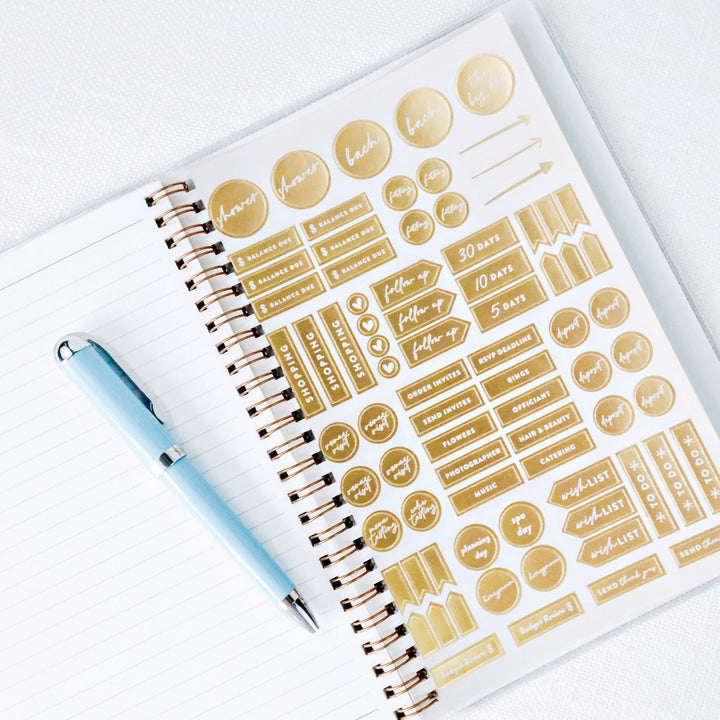 shower
shower
bach
bach
the
big day
fitting
fitting
fitting
fitting
$ BALANCE DUE
$ BALANCE DUE
$ BALANCE DUE
$ BALANCE DUE
$ BALANCE DUE
$ BALANCE DUE
30 DAYS
10 DAYS
5 DAYS
follow up
follow up
follow up
SHOPPING
SHOPPING
SHOPPING
deposit
deposit
deposit
deposit
deposit
deposit
ORDER INVITES
SEND INVITES
FLOWERS
PHOTOGRAPHER
MUSIC
RSVP DEADLINE
RINGS
OFFICIANT
HAIR & BEAUTY
CATERING
venue
visit
venue
visit
venue
visit
venue
visit
menu
tasting
cake
tasting
planning
day
spa
day
honeymoon
honeymoon
wishLIST
wishLIST
wishLIST
TO DO
TO DO
TO DO
SEND thank yous
SEND thank yous
Budget Review $
Budget Review $